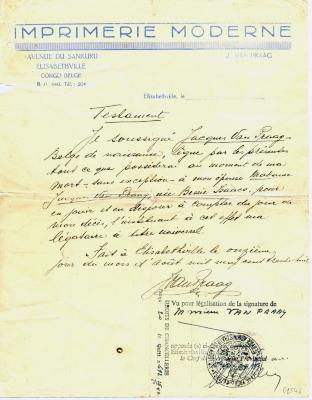 IMPRIMERIE MODERNE
AVENUE DU SANKURU
ELISABETHVILLE
CONGO BELGE
J. VAN PRAAG
Elisabethville, le
Testament
Je soussigné Jacques Van Praag
Belge de naissance, lègue par les présentes
tout ce que posséderai au moment de ma
mort - sans exception - à mon épouse Madame
Van Praag, née Bessie Isaacs, pour
en jouir et en disposer à compter du jour de
mon décès, l'instituant à cet effet ma
légataire à titre universel.
Fait à Elisabethville le onzième
jour du mois d'Août mil neuf cent trente huit
J Van Praag
Vu pour légalisation de la signature de
Monsieur VAN PRAAG